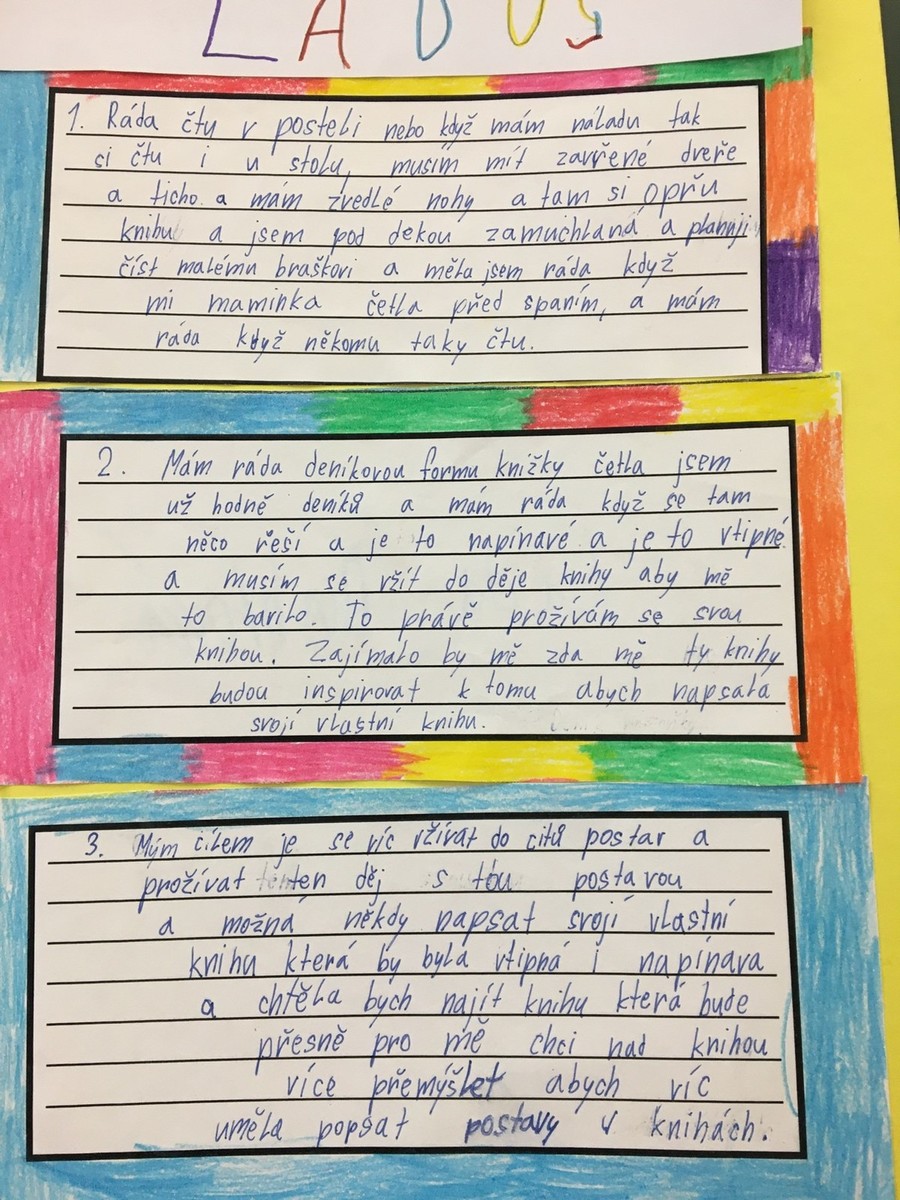 LADUS
1. Ráda čtu v posteli nebo když mám náladu tak
si čtu i u stolu, musím mít zavřené dveře
a ticho a mám zvedlé nohy a tam si opřu
knihu a jsem pod dekou zamuchlaná a planuji
číst malému braškovi a měla jsem ráda když
mi maminka četla před spaním, a mám
ráda když někomu taky čtu.
2. Mám ráda deníkovou formu knížky četla jsem
už hodně deníků a mám ráda když se tam
něco řeší a je to napínavé a je to vtipné
a musím se vžít do děje knihy aby mě
to bavilo. To právě prožívám se svou
knihou. Zajímalo by mě zda mě ty knihy
budou inspirovat k tomu abych napsala
svojí vlastní knihu.
3. Mým cílem je se víc vžívat do citů postav a
prožívat ten děj s tou postavou
a možná někdy napsat svojí vlastní
knihu která by byla vtipná i napínava
a chtěla bych najít knihu která bude
přesně pro mě chci nad knihou
více přemýšlet abych víc
uměla popsat postavy v knihách.